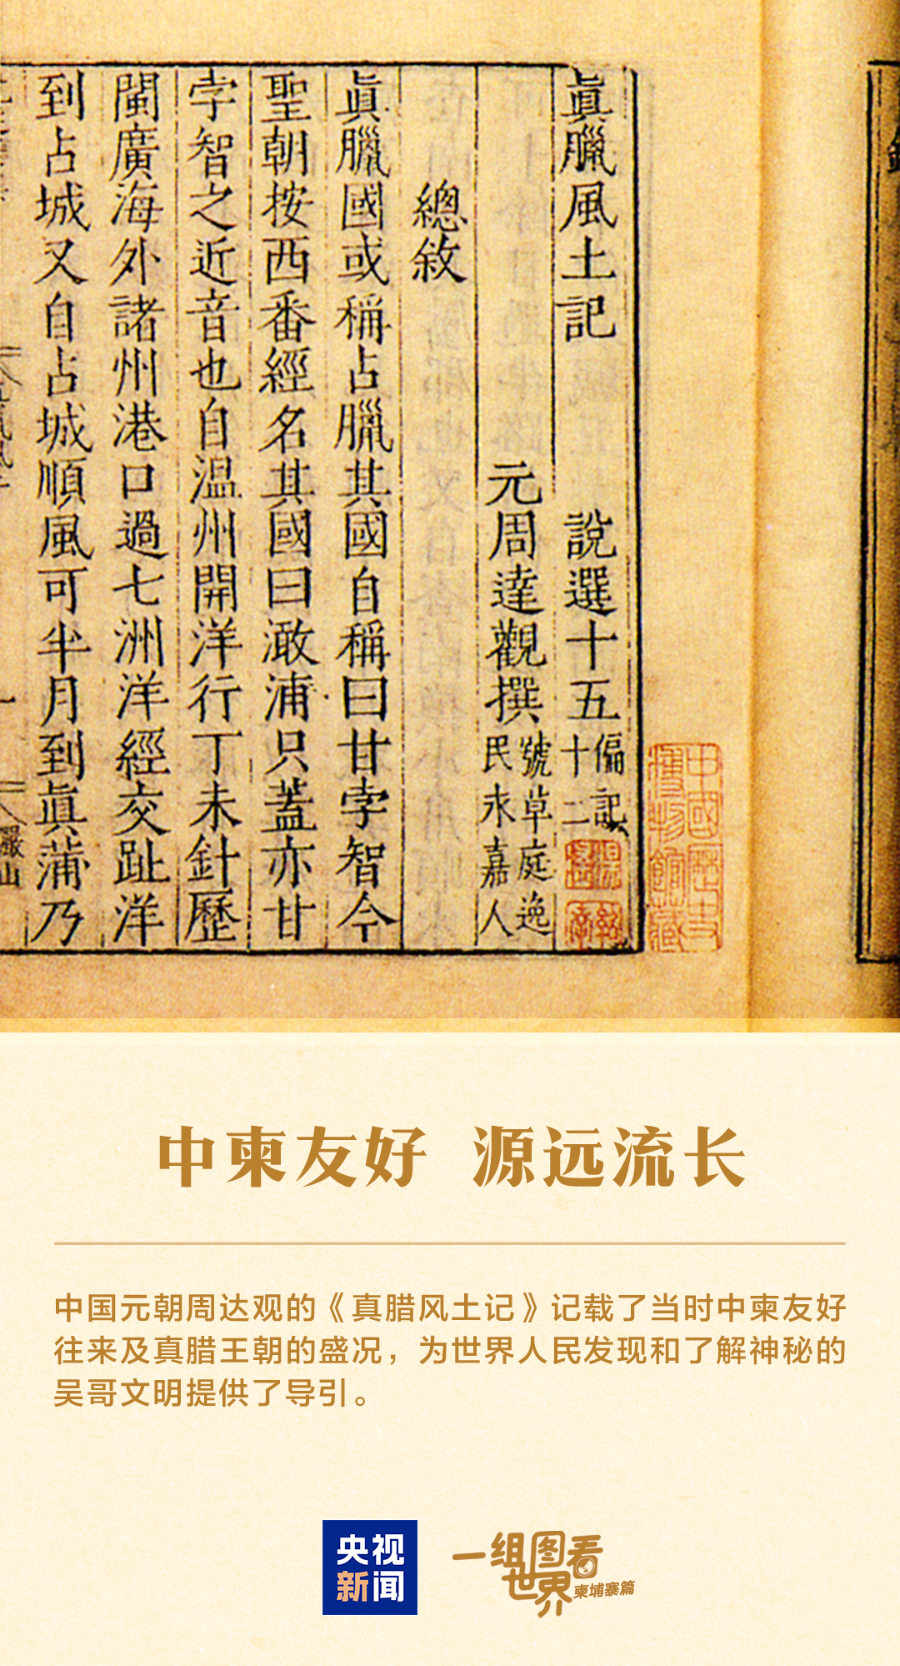 眞臘風土記 說選十五 偏記十二
元周達觀撰 號草庭逸民永嘉人
總敘
眞臘國或稱占臘其國自稱曰甘孛智今
聖朝按西番經名其國曰澉浦只蓋亦甘
孛智之近音也自温州開洋行丁未針歷
閩廣海外諸州港口過七洲洋經交趾洋
到占城又自占城順風可半月到眞蒲乃
中國歷史
博物館藏
中柬友好 源远流长
中国元朝周达观的《真腊风土记》记载了当时中柬友好
往来及真腊王朝的盛况，为世界人民发现和了解神秘的
吴哥文明提供了导引。
央视
新闻
一组图看
世界
柬埔寨篇